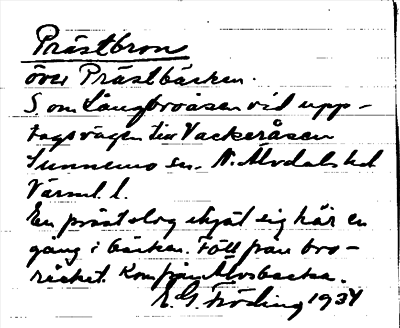 Prästbron
över Prästbäcken.
S om Långbroåsen vid upp-
tagsvägen till Vackeråsen
Sunnemo sn. N. Älvdals hd
Värml. l.
En präst slog ihjäl sig här en
gång i bäcken. Föll från bro-
räcket. Kom från Älvsbacka.
E. G. Fröding 1934